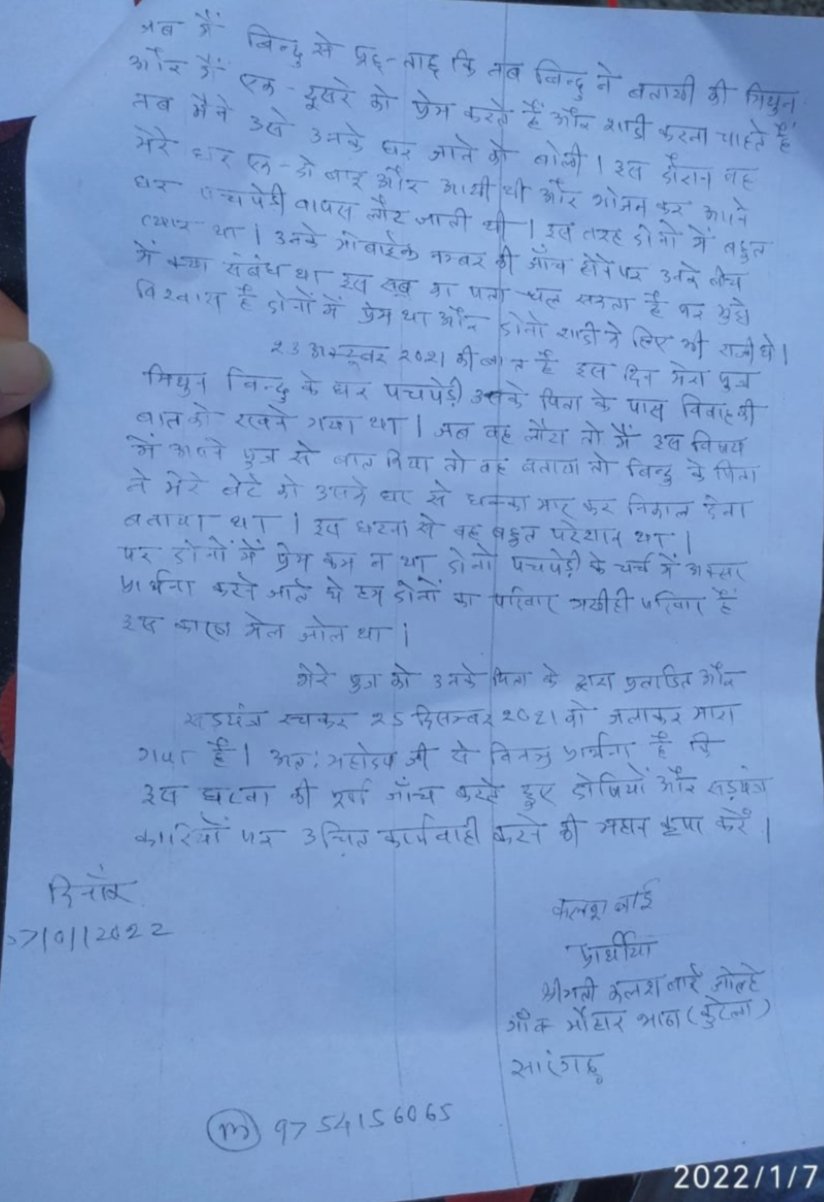 जब मैं बिन्दु से पूछ-ताछ कि तब बिन्दु ने बतायी की मिथुन
और मैं एक-दूसरे को प्रेम करते हैं और शादी करना चाहते हैं
तब मैंने उसे उनके घर जाने को बोली । इस दौरान वह
मेरे घर एक-दो बार और आयी थी और भोजन कर अपने
घर पचपेड़ी वापस लौट जाती थी । इस तरह दोनों में बहुत
प्यार था । उनके मोबाईल नम्बर की जाँच होने पर उनके बीच
में क्या संबंध था इस सब का पता चल सकता है पर मुझे
विश्वास है दोनों में प्रेम था और दोनों शादी के लिए भी राजी थे ।
23 अक्टूबर 2021 की बात है इस दिन मेरा पुत्र
मिथुन बिन्दु के घर पचपेड़ी उसके पिता के पास विवाह की
बात को रखने गया था । जब वह लौटा तो मैं इस विषय
में अपने पुत्र से बात किया तो वह बताया तो बिन्दु के पिता
ने मेरे बेटे को उसके घर से धक्का मार कर निकाल देना
बताया था । इस घटना से वह बहुत परेशान था ।
पर दोनों में प्रेम कम न था दोनों पचपेड़ी के चर्च में अक्सर
प्रार्थना करने जाते थे हम दोनों का परिवार मसीही परिवार हैं
इस कारण मेल जोल था ।
मेरे पुत्र को उनके पिता के द्वारा प्रताडित और
षडयंत्र रचकर 25 दिसम्बर 2021 को जलाकर मारा
गया है । अतः महोदय जी से विनम्र प्रार्थना है कि
इस घटना की पूर्ण जाँच करते हुए दोषियों और षड़यंत्र
कारियों पर उचित कार्यवाही करने की महान कृपा करें ।
दिनाँक
07/01/2022
कलश बाई
प्रार्थीया
श्रीमती कलश बाई जोल्हे
भाठा (कुटेला)
सारंगढ़
(m) 9754156065
2022/1/7